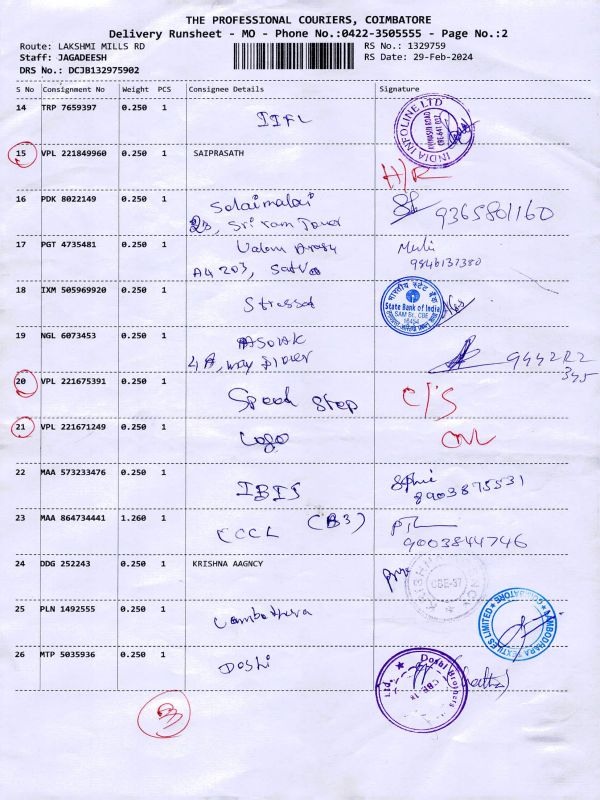 THE PROFESSIONAL COURIERS, COIMBATORE
Delivery Runsheet - MO - Phone No.:0422-3505555 - Page No.:2
Route: LAKSHMI MILLS RD RS No.: 1329759
Staff: JAGADEESH RS Date: 29-Feb-2024
DRS No.: DCJB132975902
S No Consignment No Weight PCS Consignee Details Signature
14 TRP 7659397 0.250 1 IIFL INDIA INFOLINE LTD
15 VPL 221849960 0.250 1 SAIPRASATH H/R
16 PDK 8022149 0.250 1 Solaimalai 9365801160
23, Sri ram Tower
17 PGT 4735481 0.250 1
A4 203, 9846137380
18 IXM 505969920 0.250 1 Stressed भारतीय स्टेट बैंक State Bank of India
SAM Br., CBE
19 NGL 6073453 0.250 1 ASOAK
4A, 9442R2
345
20 VPL 221675391 0.250 1 Speed Step C/S
21 VPL 221671249 0.250 1 Logo
22 MAA 573233476 0.250 1 IBIS 8903875531
23 MAA 864734441 1.260 1 CCCL (B3)
9003844746
24 DDG 252243 0.250 1 KRISHNA AAGNCY CBE-37
25 PLN 1492555 0.250 1 COIMBATORE TEXTILES LIMITED
26 MTP 5035936 0.250 1 Doshi Doshi Brothers Ltd.
3